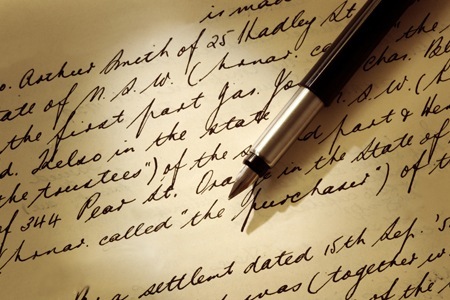 is made
o. Arthur Smith of 25 Hadley St
tate of N.S.W. (h'nar. called
the first part Gas. Jo Chas. Bl
d. Kelso in the State N.S.W. (
the trustees") of the second part & Hen
of 344 Pear St. Orange in the State of
(h'nar. called "the purchaser") of t
a settlemt dated 15th Sep. '5
was (together w
of the